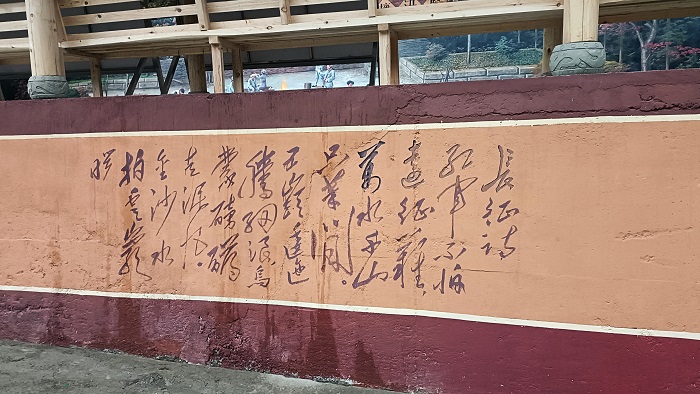 長征詩
紅軍不怕
遠征難，
萬水千山
只等閒。
五嶺逶迤
騰細浪烏
蒙磅礴
走泥丸。
金沙水
拍雲巖
暖